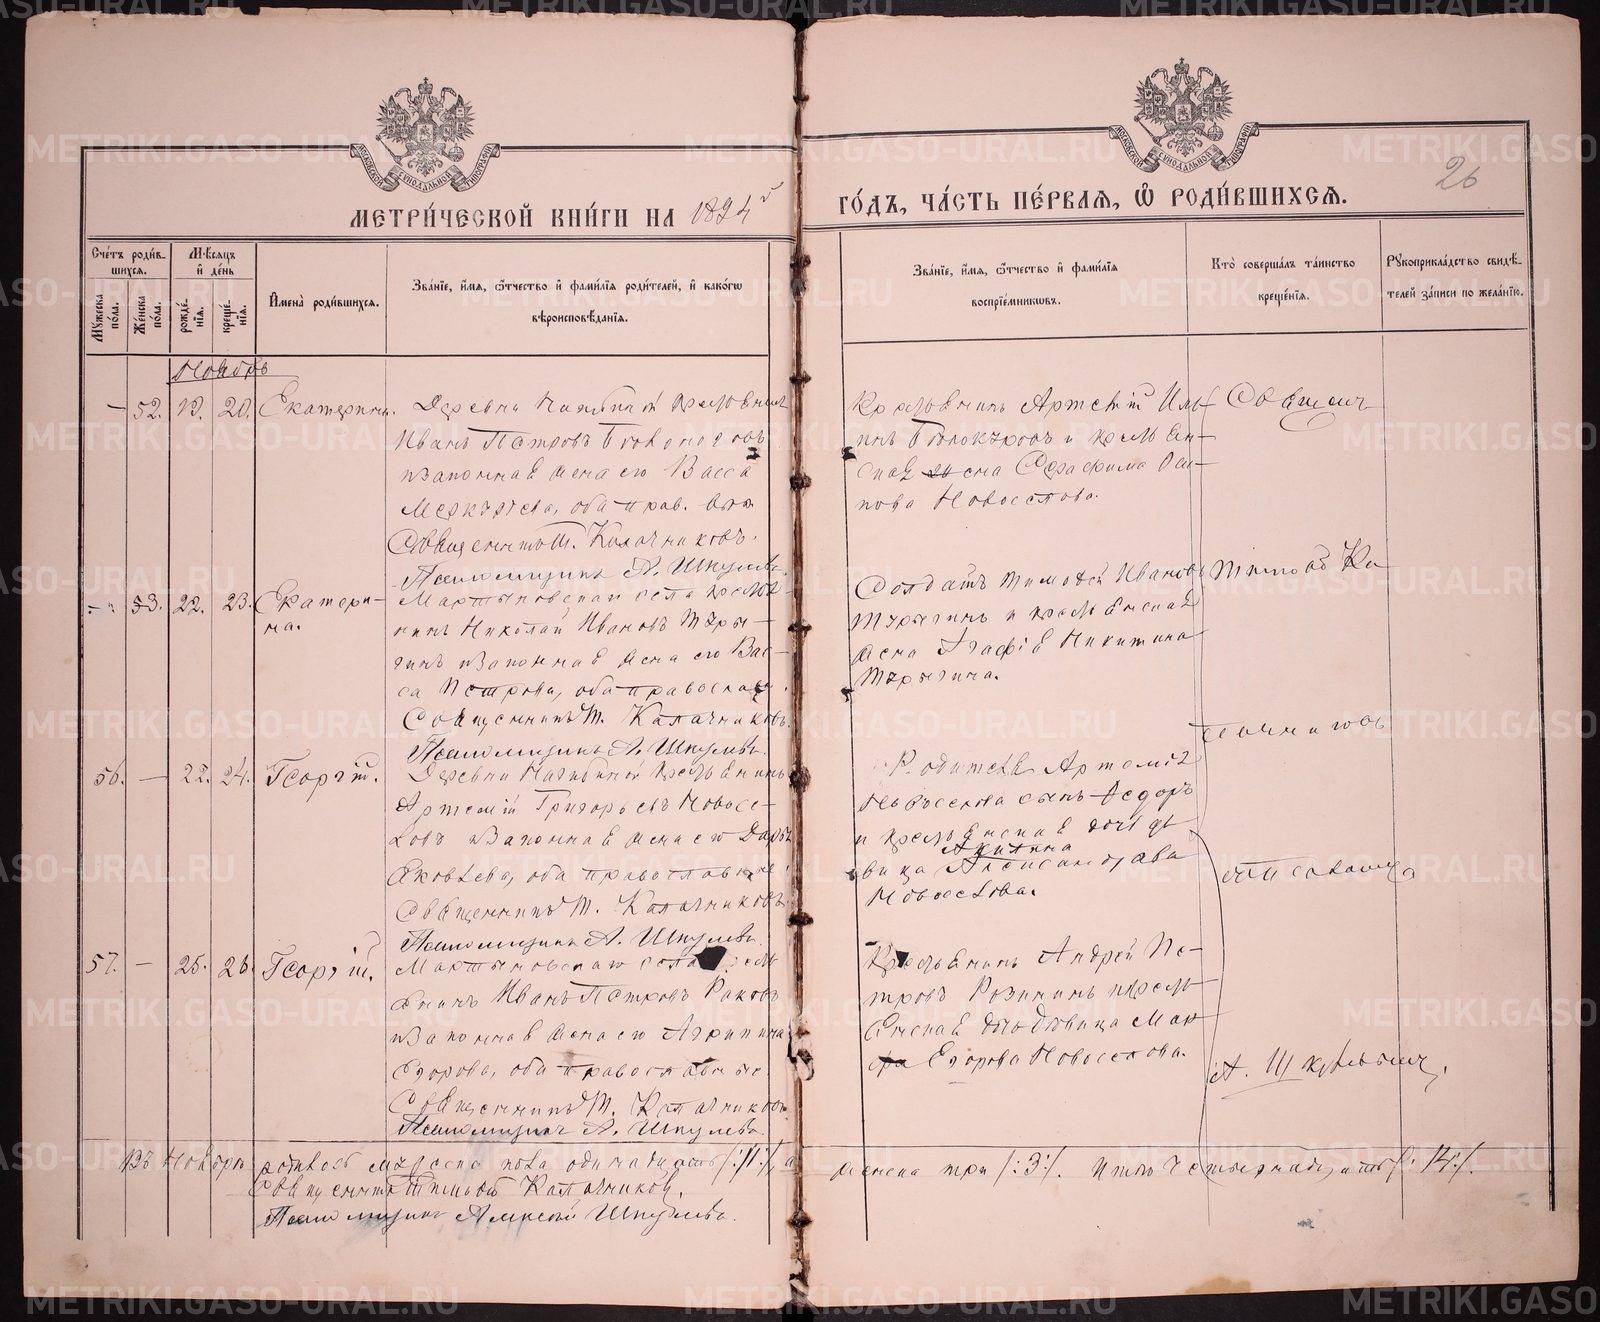 МЕТРИ́ЧЕСКОЙ КНИ́ГИ НА 1894
ГО́ДЪ, ЧА́СТЬ ПЕ́РВАЯ, Ѿ РОДИ́ВШИХСЯ.
26
Сче́тъ роди́в-
шихся.
Мѣ́сяцъ
и́ де́нь
Му́жеска по́ла.
Же́нска по́ла.
рожде́-
нїя.
креще́-
нїя.
И҆мена̀ роди́вшихся.
Зва́нїе, и҆́мя, ѻ҆́тчество и҆ фами́лїя роди́телей, и҆ како́гѡ
вѣроисповѣ́данїя.
Зва́нїе, и҆́мя, ѻ҆́тчество и҆ фами́лїя
воспрїе́мникѡвъ.
Кто̀ соверша́лъ та́инство
креще́нїя.
Рꙋкоприкла́дство свидѣ́-
телей за́писи по жела́нїю.
Ноябрь
52. 19. 20. Екатерина.
Иванъ Петровъ
и законная жена его Васса
оба прав. вѣр.
Священникъ Т. Калачниковъ.
Псаломщикъ А. Шкулевъ.
Крестьянинъ Артемій Иль-
инъ и крестьян-
ская жена Серафима Оси-
пова Новоселова.
53. 22. 23. Екатери-
на.
Мартыновскаго села крестья-
нинъ Николай Ивановъ Тыры-
гинъ и законная жена его Вас-
са Петрова, оба православ.
Священникъ Т. Калачниковъ.
Псаломщикъ А. Шкулевъ.
Солдатъ Тимофей Ивановъ
Тырыгинъ и крестьянская
жена Агафія Никитина
Тырыгина.
56. — 22. 24. Георгій.
Деревни крестьянинъ
Артемій Григорьевъ Новосе-
ловъ и законная жена его Дарья
Яковлева, оба православные.
Священникъ Т. Калачниковъ
Псаломщикъ А. Шкулевъ.
Родителя Артемія
Новоселова сынъ Ѳедоръ
и крестьянская дочь дѣ-
вица Акилина Александрова
Новоселова.
57. — 25. 26. Георгій.
Мартыновскаго села кресть
янинъ Иванъ Петровъ Раковъ
и законная жена его Агрипина
Егорова, оба православные.
Священникъ Т. Калачниковъ.
Псаломщикъ А. Шкулевъ.
Крестьянинъ Андрей Пе-
тровъ и кресть
янская дочь дѣвица Мар
фа Егорова Новоселова.
Священ
Тимофей Ка
лачниковъ
Псаломщ
А. Шкулевъ.
Въ Ноябрѣ родилось мужеска пола одинадцать /:11:/, а
женска три /:3:/. Итого четырнадцать /:14:/.
Священникъ Тимофей Калачниковъ.
Псаломщикъ Алексѣй Шкулевъ.
METRIKI.GASO-URAL.RU